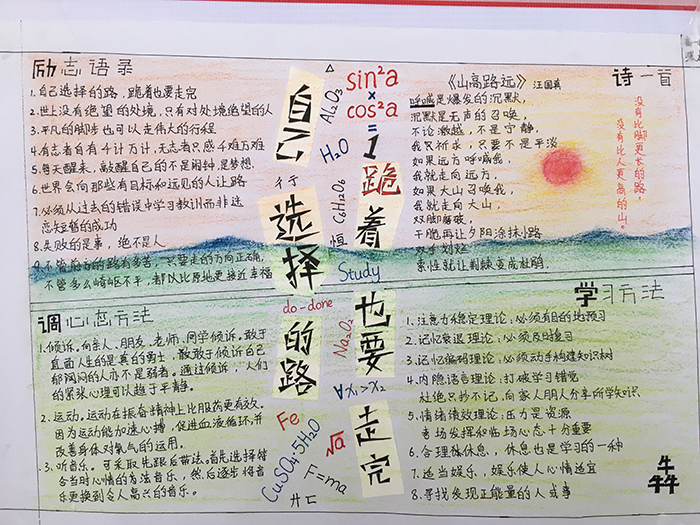 励志语录
1.自己选择的路，跪着也要走完
2.世上没有绝望的处境，只有对处境绝望的人
3.平凡的脚步也可以走伟大的行程
4.有志者自有千计万计，无志者只感千难万难
5.每天醒来，敲醒自己的不是闹钟，是梦想
6.世界会向那些有目标和远见的人让路
7.必须从过去的错误中学习教训而非迷
恋失败的成功
8.失败的是事，绝不是人
9.不管前方的路有多苦，只要走的方向正确，
不管多么崎岖不平，都以比原地更接近幸福
调心态方法
1.倾诉。向亲人、朋友、老师、同学倾诉。敢于
直面人生的是真的勇士，敢敢于倾诉自己
郁闷闷的人亦不是弱者。通过倾诉，人们
的紧张心理可以趋于平静。
2.运动。运动在振奋精神上比服药更有效。
因为运动能加速心搏，促进血液循环，并
改善身体对氧气的运用。
3.听音乐。可采取先跟后带法。首先选择符
合当时心情的方法音乐，然后逐步将音
乐更换到令人高兴的音乐。
自己
选择
的路
跪着
也要
走完
Al₂O₃
sin²a
×
cos²a
=
1
H₂O
行
C₆H₁₂O₆
恒
Study
do-done
Na₂O₂
∀x₁>x₂
Fe
√a
CuSO₄·5H₂O
F=ma
诗一首
《山高路远》 汪国真
呼喊是爆发的沉默，
沉默是无声的召唤，
不论激越，不是宁静，
我只祈求，只要不是平淡
如果远方呼喊我，
我就走向远方，
如果大山召唤我，
我就走向大山，
双脚磨破，
干脆再让夕阳涂抹小路
双手划烂
索性就让荆棘变成杜鹃。
没有比脚更长的路，
没有比人更高的山。
学习方法
1.注意力稳定理论：必须有目的地预习
2.记忆衰退理论：必须及时复习
3.记忆编码理论：必须动手构建知识树
4.内隐语言理论：打破学习错觉
杜绝只抄不记，向家人朋人分享所学知识
5.情绪绩效理论：压力是资源
考场发挥和临场心态十分重要
6.合理林休息，休息也是学习的一种
7.适当娱乐，娱乐使人心情适宜
8.寻找发现正能量的人或事